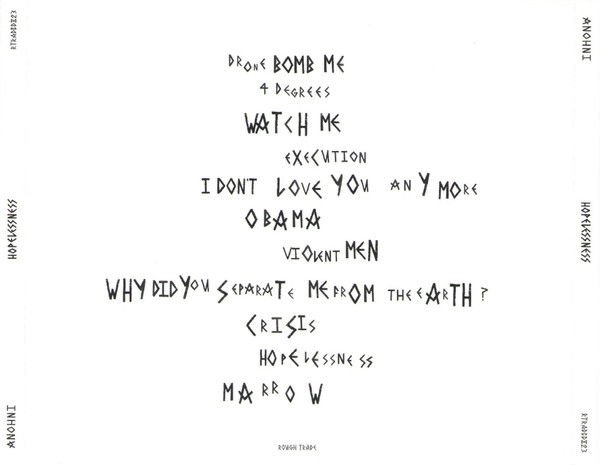 DRONE BOMB ME
4 DEGREES
WATCH ME
EXECUTION
I DON'T LOVE YOU ANYMORE
OBAMA
VIOLENT MEN
WHY DID YOU SEPARATE ME FROM THE EARTH?
CRISIS
HOPELESSNESS
MARROW
ROUGH TRADE
ANOHNI
HOPELESSNESS
ANOHNI
HOPELESSNESS